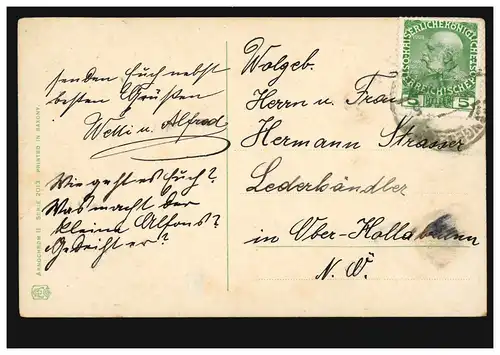 senden Euch nebst
besten Grüßen
Wetti u. Alfred
Wie geht es Euch?
Was macht der
kleine Alfons?
Gedeiht er?
Wolgeb.
Herrn u. Frau
Hermann Strasser
Lederhändler
in Ober-Hollabrunn
N. Ö
KAISERLICHE KÖNIGLICHE
ÖSTERREICHISCHE
5 5
SERIE 2013 PRINTED IN SAXONY